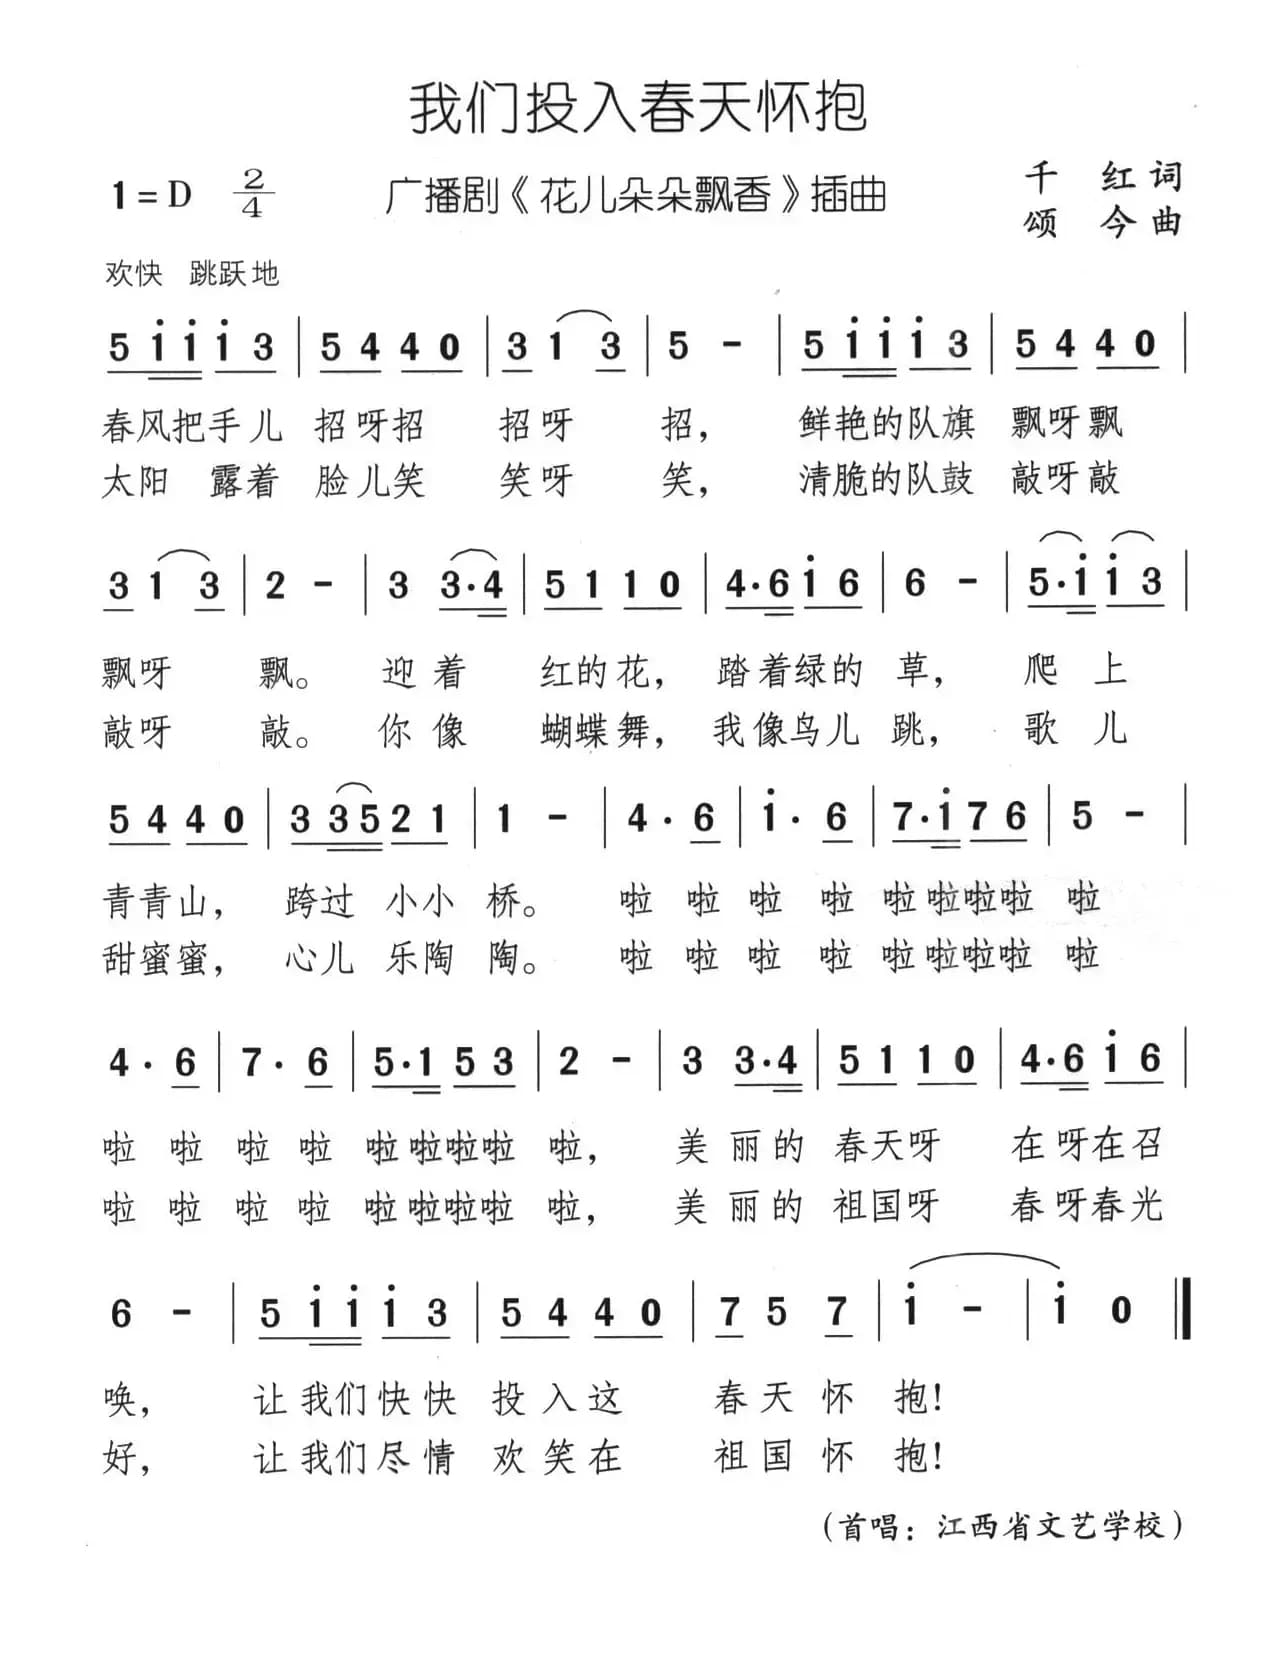 我们投入春天怀抱
1=D 2/4 广播剧《花儿朵朵飘香》插曲 千红词
颂今曲
欢快 跳跃地
5 i i i 3 | 5 4 4 0 | 3 1 3 | 5 - | 5 i i i 3 | 5 4 4 0 |
春风把手儿 招呀招 招呀 招， 鲜艳的队旗 飘呀飘
太阳 露着 脸儿笑 笑呀 笑， 清脆的队鼓 敲呀敲
3 1 3 | 2 - | 3 3·4 | 5 1 1 0 | 4·6 i 6 | 6 - | 5·i i 3 |
飘呀 飘。 迎着 红的花， 踏着绿的 草， 爬上
敲呀 敲。 你像 蝴蝶舞， 我像鸟儿 跳， 歌儿
5 4 4 0 | 3 3 5 2 1 | 1 - | 4· 6 | i· 6 | 7·i 7 6 | 5 - |
青青山， 跨过 小小 桥。 啦 啦 啦 啦 啦 啦啦啦 啦
甜蜜蜜， 心儿 乐陶 陶。 啦 啦 啦 啦 啦 啦啦啦 啦
4· 6 | 7· 6 | 5·1 5 3 | 2 - | 3 3·4 | 5 1 1 0 | 4·6 i 6 |
啦 啦 啦 啦 啦 啦啦啦 啦， 美丽的 春天呀 在呀在召
啦 啦 啦 啦 啦 啦啦啦 啦， 美丽的 祖国呀 春呀春光
6 - | 5 i i i 3 | 5 4 4 0 | 7 5 7 | i - | i 0 ‖
唤， 让我们快快 投入这 春天怀 抱！
好， 让我们尽情 欢笑在 祖国怀 抱！
（首唱：江西省文艺学校）